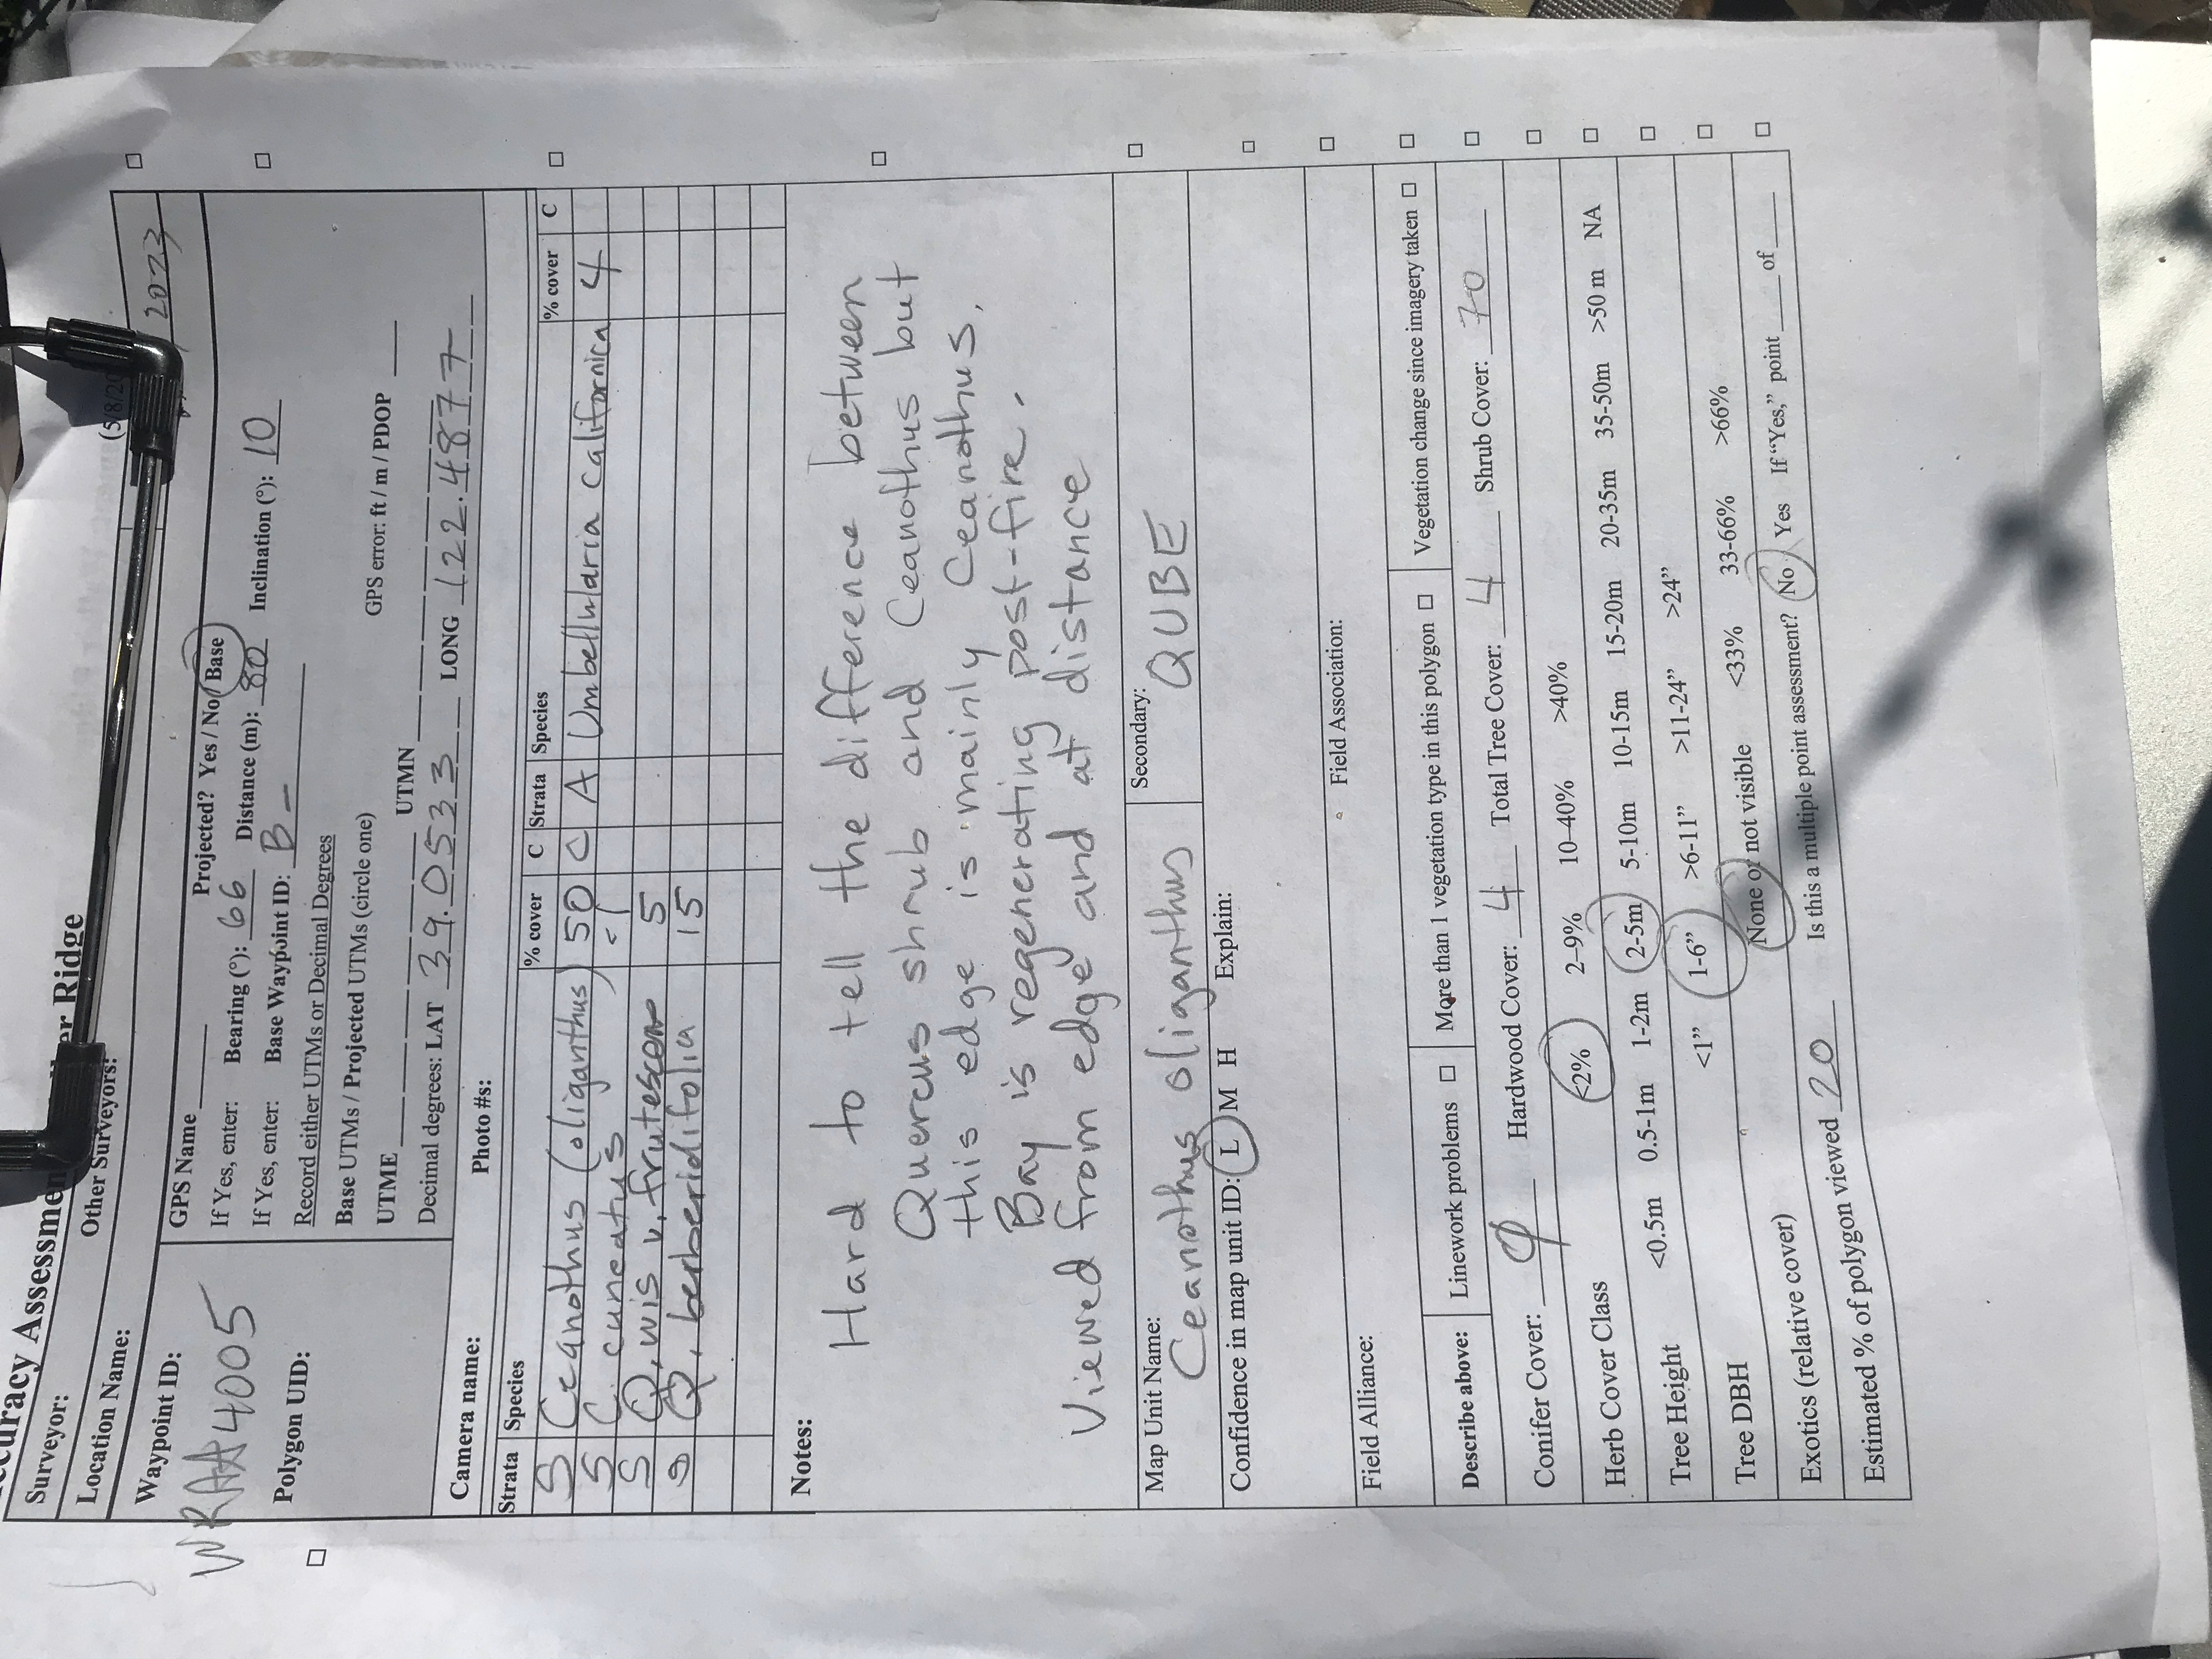 Accuracy Assessment
er Ridge
(5/8/20
Surveyor:
Other Surveyors:
Location Name:
2023
Waypoint ID:
WRAA4005
Polygon UID:
GPS Name ____ Projected? Yes / No / Base
If Yes, enter: Bearing (°): 66 Distance (m): 80 Inclination (°): 10
If Yes, enter: Base Waypoint ID: B-
Record either UTMs or Decimal Degrees
Base UTMs / Projected UTMs (circle one)
GPS error: ft / m / PDOP ____
UTME ____ UTMN ____
Decimal degrees: LAT 39.0533 LONG 122.4877
Camera name: Photo #s:
Strata Species % cover C Strata Species % cover C
S Ceanothus (oliganthus) 50 C A Umbellularia californica 4
S C. cuneatus <1
S Q. wis v. frutescens 5
S Q. berberidifolia 15
Notes:
Hard to tell the difference between
Quercus shrub and Ceanothus but
this edge is mainly Ceanothus.
Bay is regenerating post-fire.
Viewed from edge and at distance
Map Unit Name: Ceanothus oliganthus Secondary: QUBE
Confidence in map unit ID: L M H Explain:
Field Alliance: Field Association:
Describe above: Linework problems □ More than 1 vegetation type in this polygon □ Vegetation change since imagery taken □
Conifer Cover: φ Hardwood Cover: 4 Total Tree Cover: 4 Shrub Cover: 70
Herb Cover Class <2% 2–9% 10-40% >40%
Tree Height <0.5m 0.5-1m 1-2m 2-5m 5-10m 10-15m 15-20m 20-35m 35-50m >50 m NA
Tree DBH <1” 1-6” >6-11” >11-24” >24”
Exotics (relative cover) None or not visible <33% 33-66% >66%
Estimated % of polygon viewed 20 Is this a multiple point assessment? No Yes If “Yes,” point ___ of ___